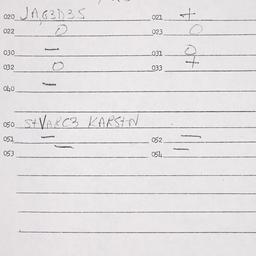 020 JAG3D35 021 +
022 O 023 O
030 — 031 O
032 O 033 +
040 —
050 STVARC3 KARSTN
051 — 052 —
053 — 054 —